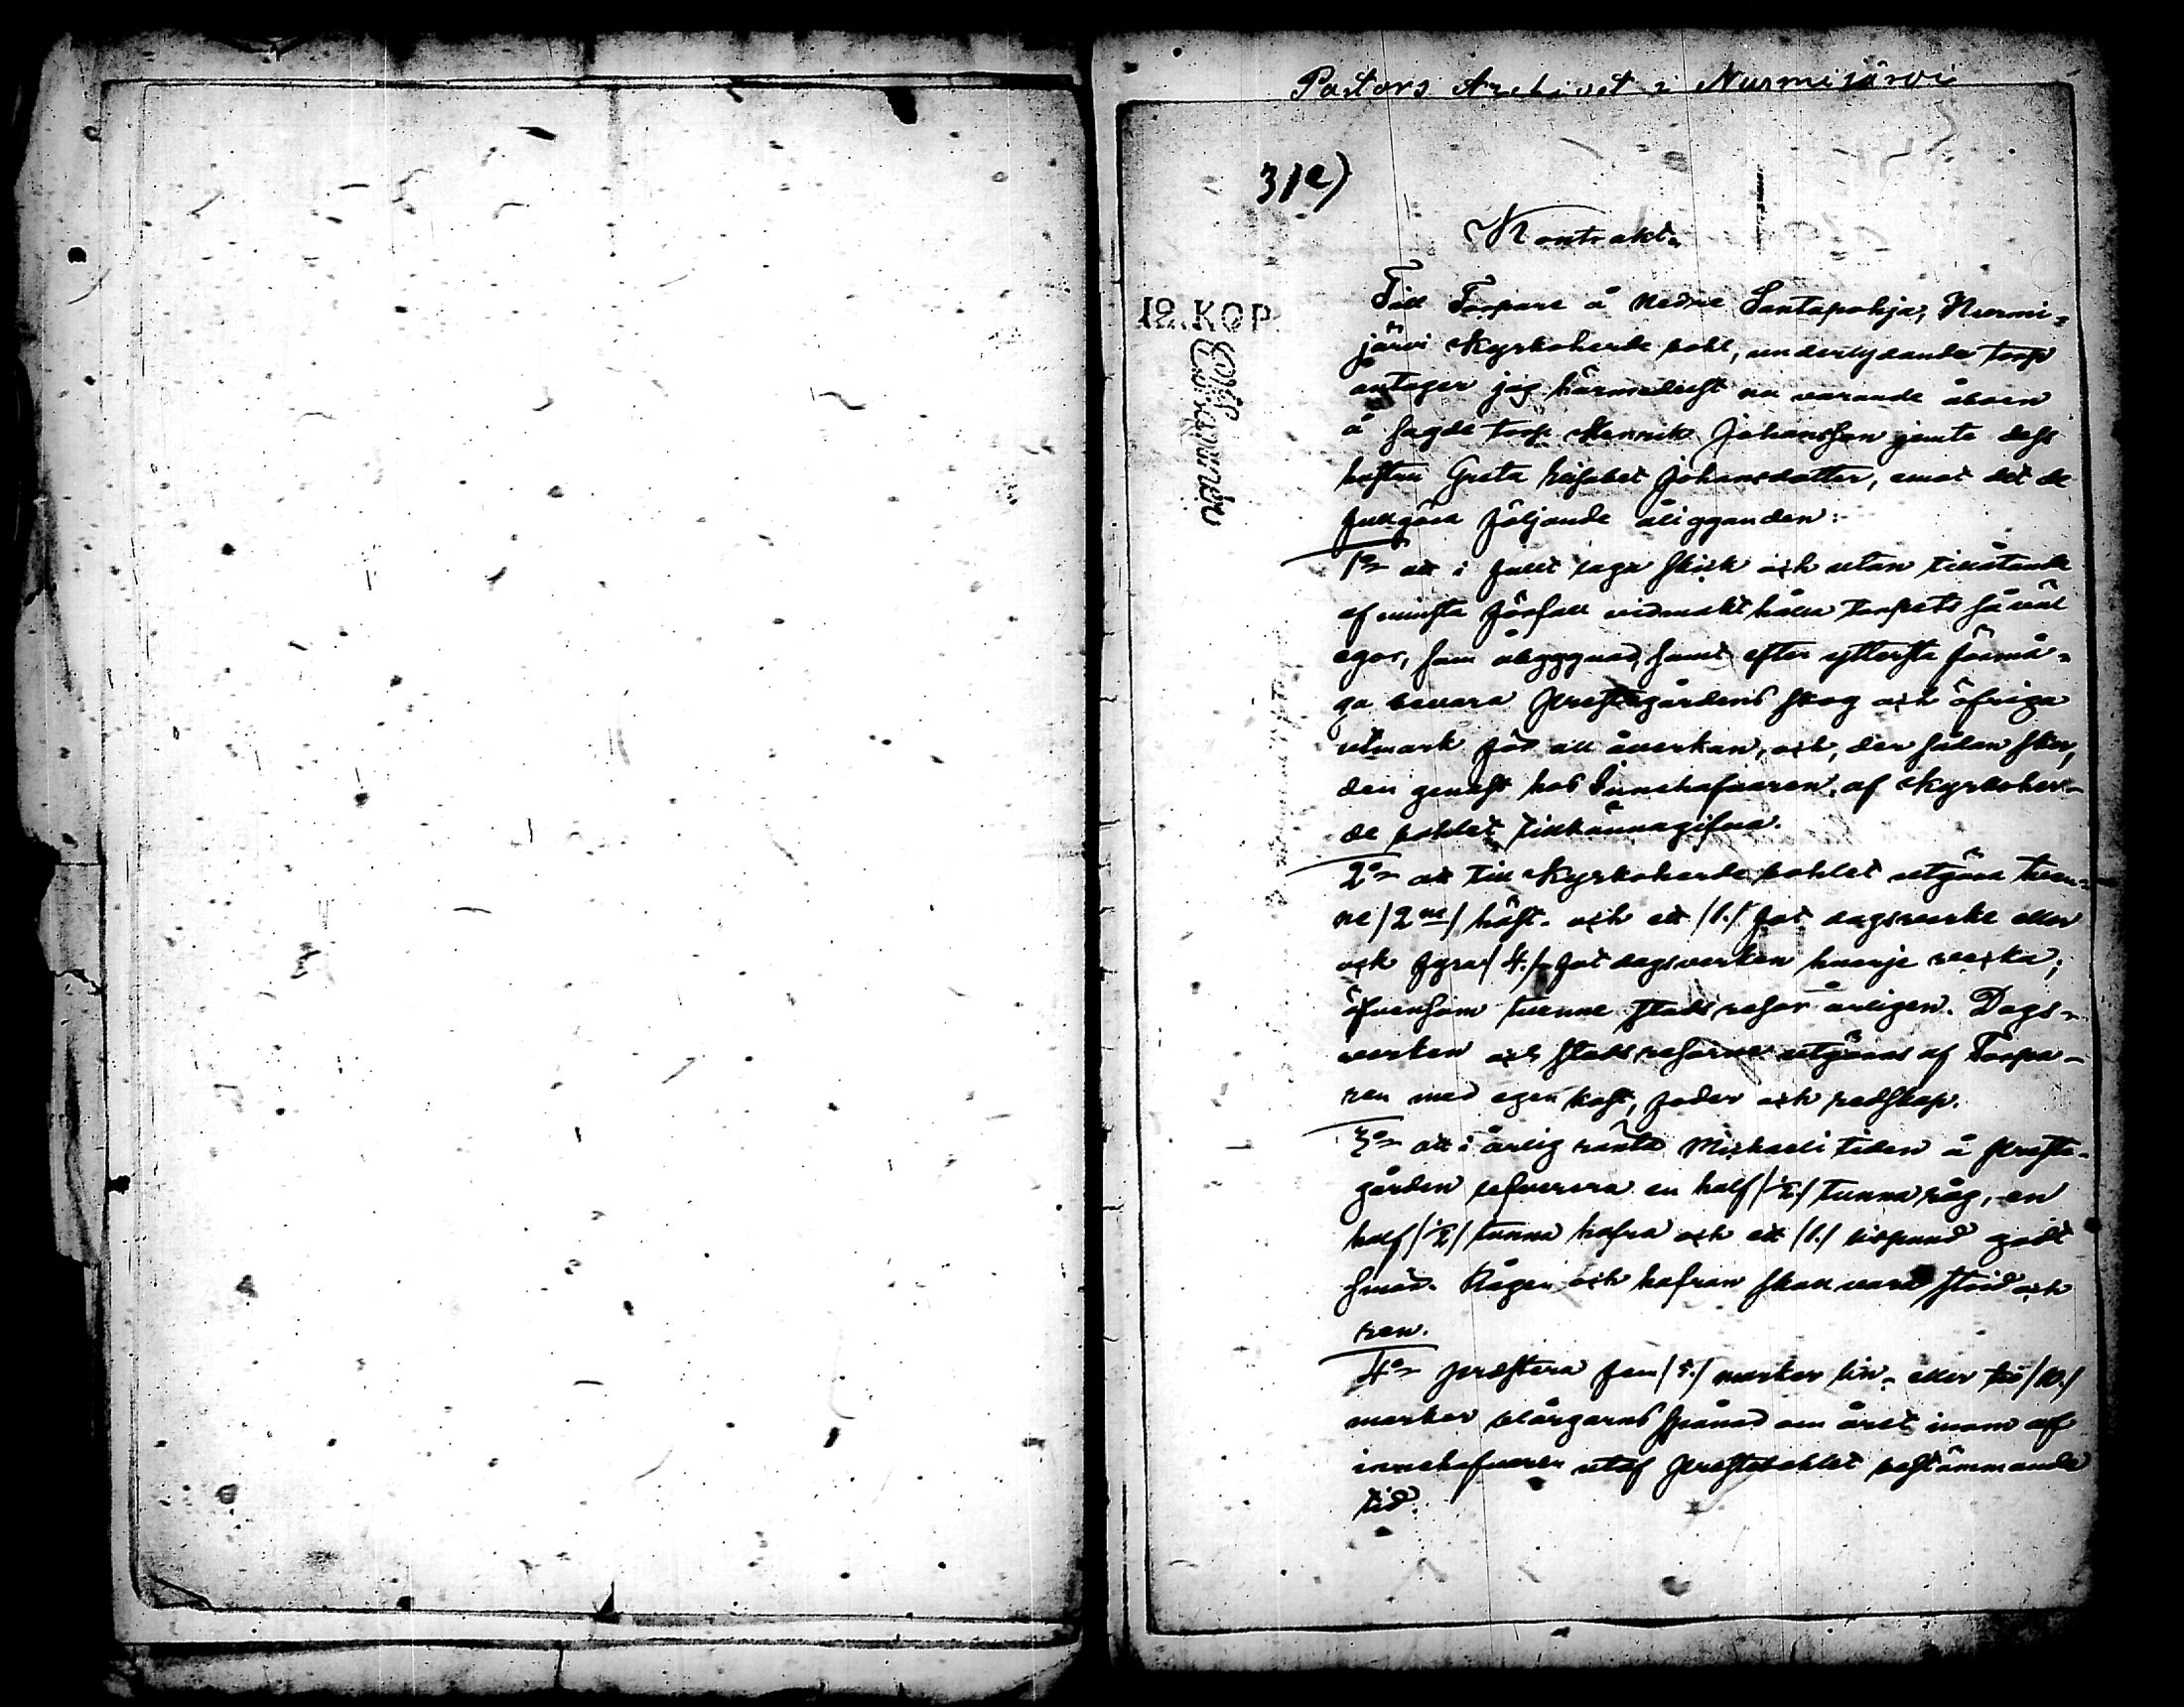 Pastors Archivet i Nurmijärvi
31e)
Kontrakt.
12. KOP.
Till Torpare å Nedre Santapohja, Nurmi-
järvi Kyrkoherde bohl, underlydande torp
antager jag härmedelst nu varande åboen
å sagde torp Henrik Johansson jemte dess
hustru Greta Lisabet Johansdotter, emot det de
fullgöra följande åligganden:
1o att i fullt laga skick och utan tillåtande
af minsta förfall vidmakthålla torpets såväl
egor, som åbyggnad, samt efter yttersta förmå-
ga bevara Prestegårdens skog och öfriga
utmark för all åverkan, och, der sådan sker,
den genast hos Innehafvaren af Kyrkoher-
de bohlet tillkännagifva.
2o att till Kyrkoherde bohlet utgöra tven-
ne /2ne/ häst- och ett /1./ fot dagsverke eller
ock fyra /4./ fot dagsverken hvarje vecka;
äfvensom tvenne stadsresor årligen. Dags-
verken och stadsresorna utgöras af Torpa-
ren med egen kost, foder och redskap.
3o att i årlig ränta Michaeli tiden å Preste-
gården lefverera en half /½/ tunna råg, en
half /½/ tunna hafra och ett /1./ lispund godt
smör. Rågen och hafran skall vara störd och
ren.
4o prestera fem /5./ marker lin- eller tio /10./
marker blårgarns spånad om året inom af
innehafvaren utaf Prestebohlet bestämmande
tid.